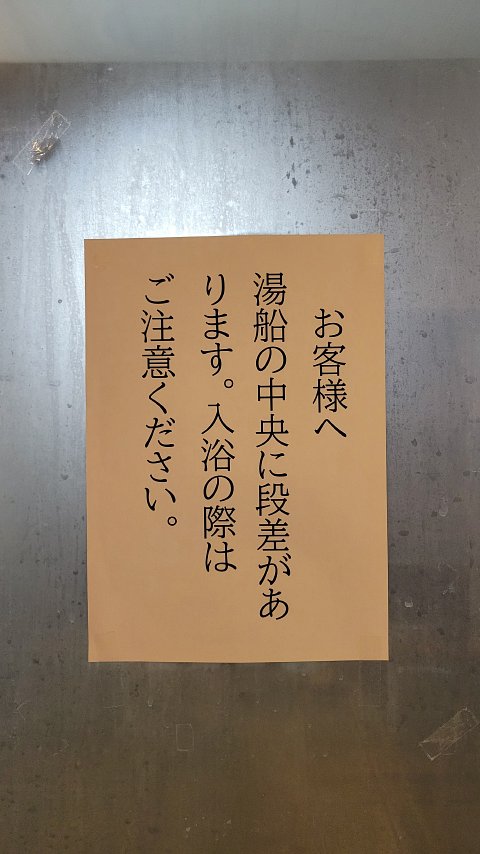 お客様へ
湯船の中央に段差があ
ります。入浴の際は
ご注意ください。